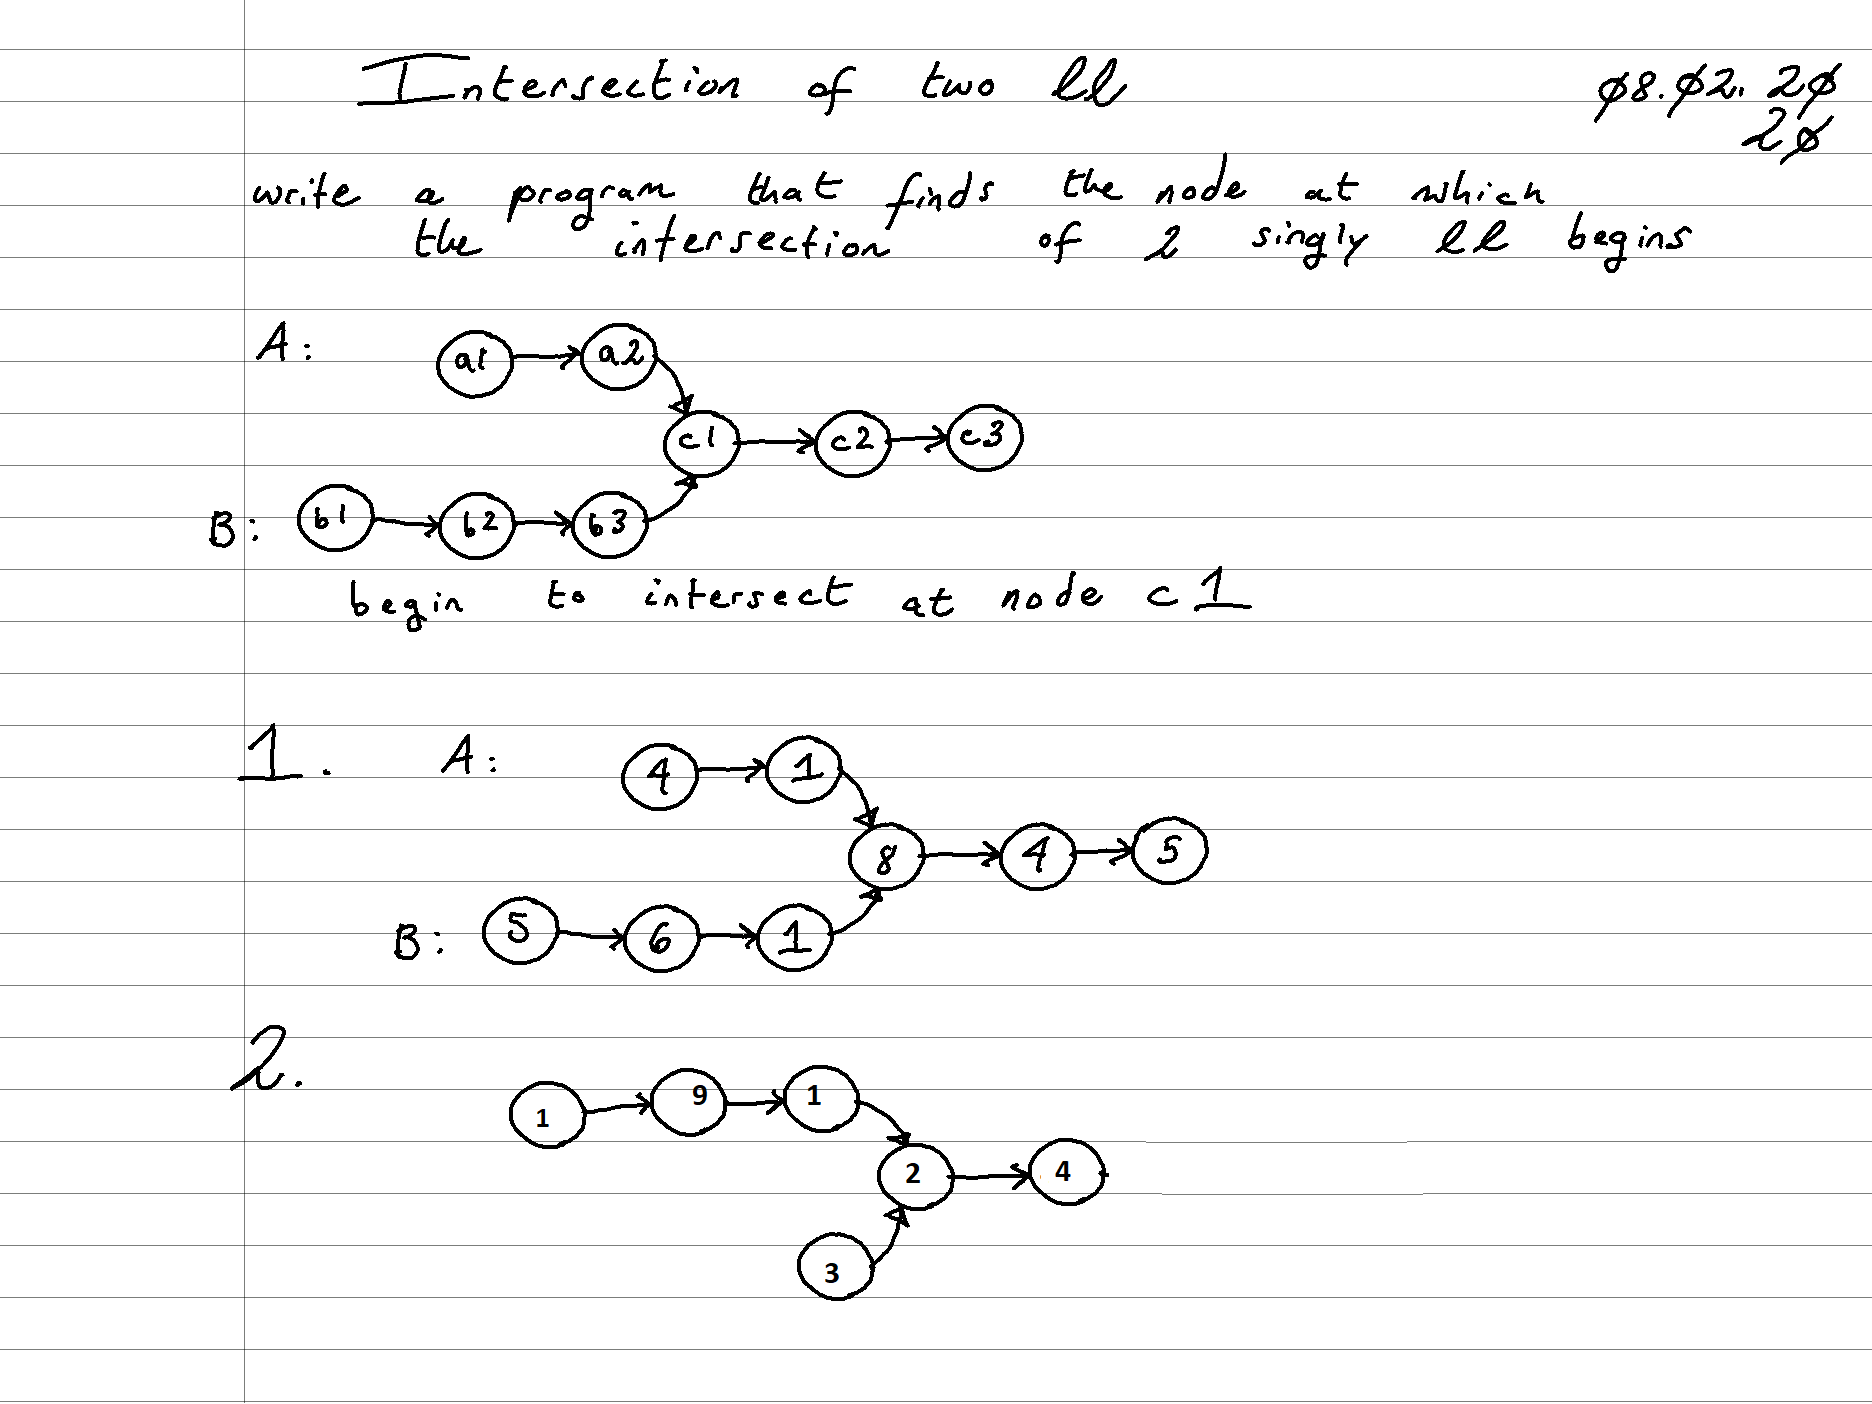 Intersection of two ll
ø8.ø2.2ø
2ø
write a program that finds the node at which
the intersection of 2 singly ll begins
A: a1 a2
c1 c2 c3
B: b1 b2 b3
begin to intersect at node c1
1. A: 4 1
8 4 5
B: 5 6 1
2.
1 9 1
2 4
3